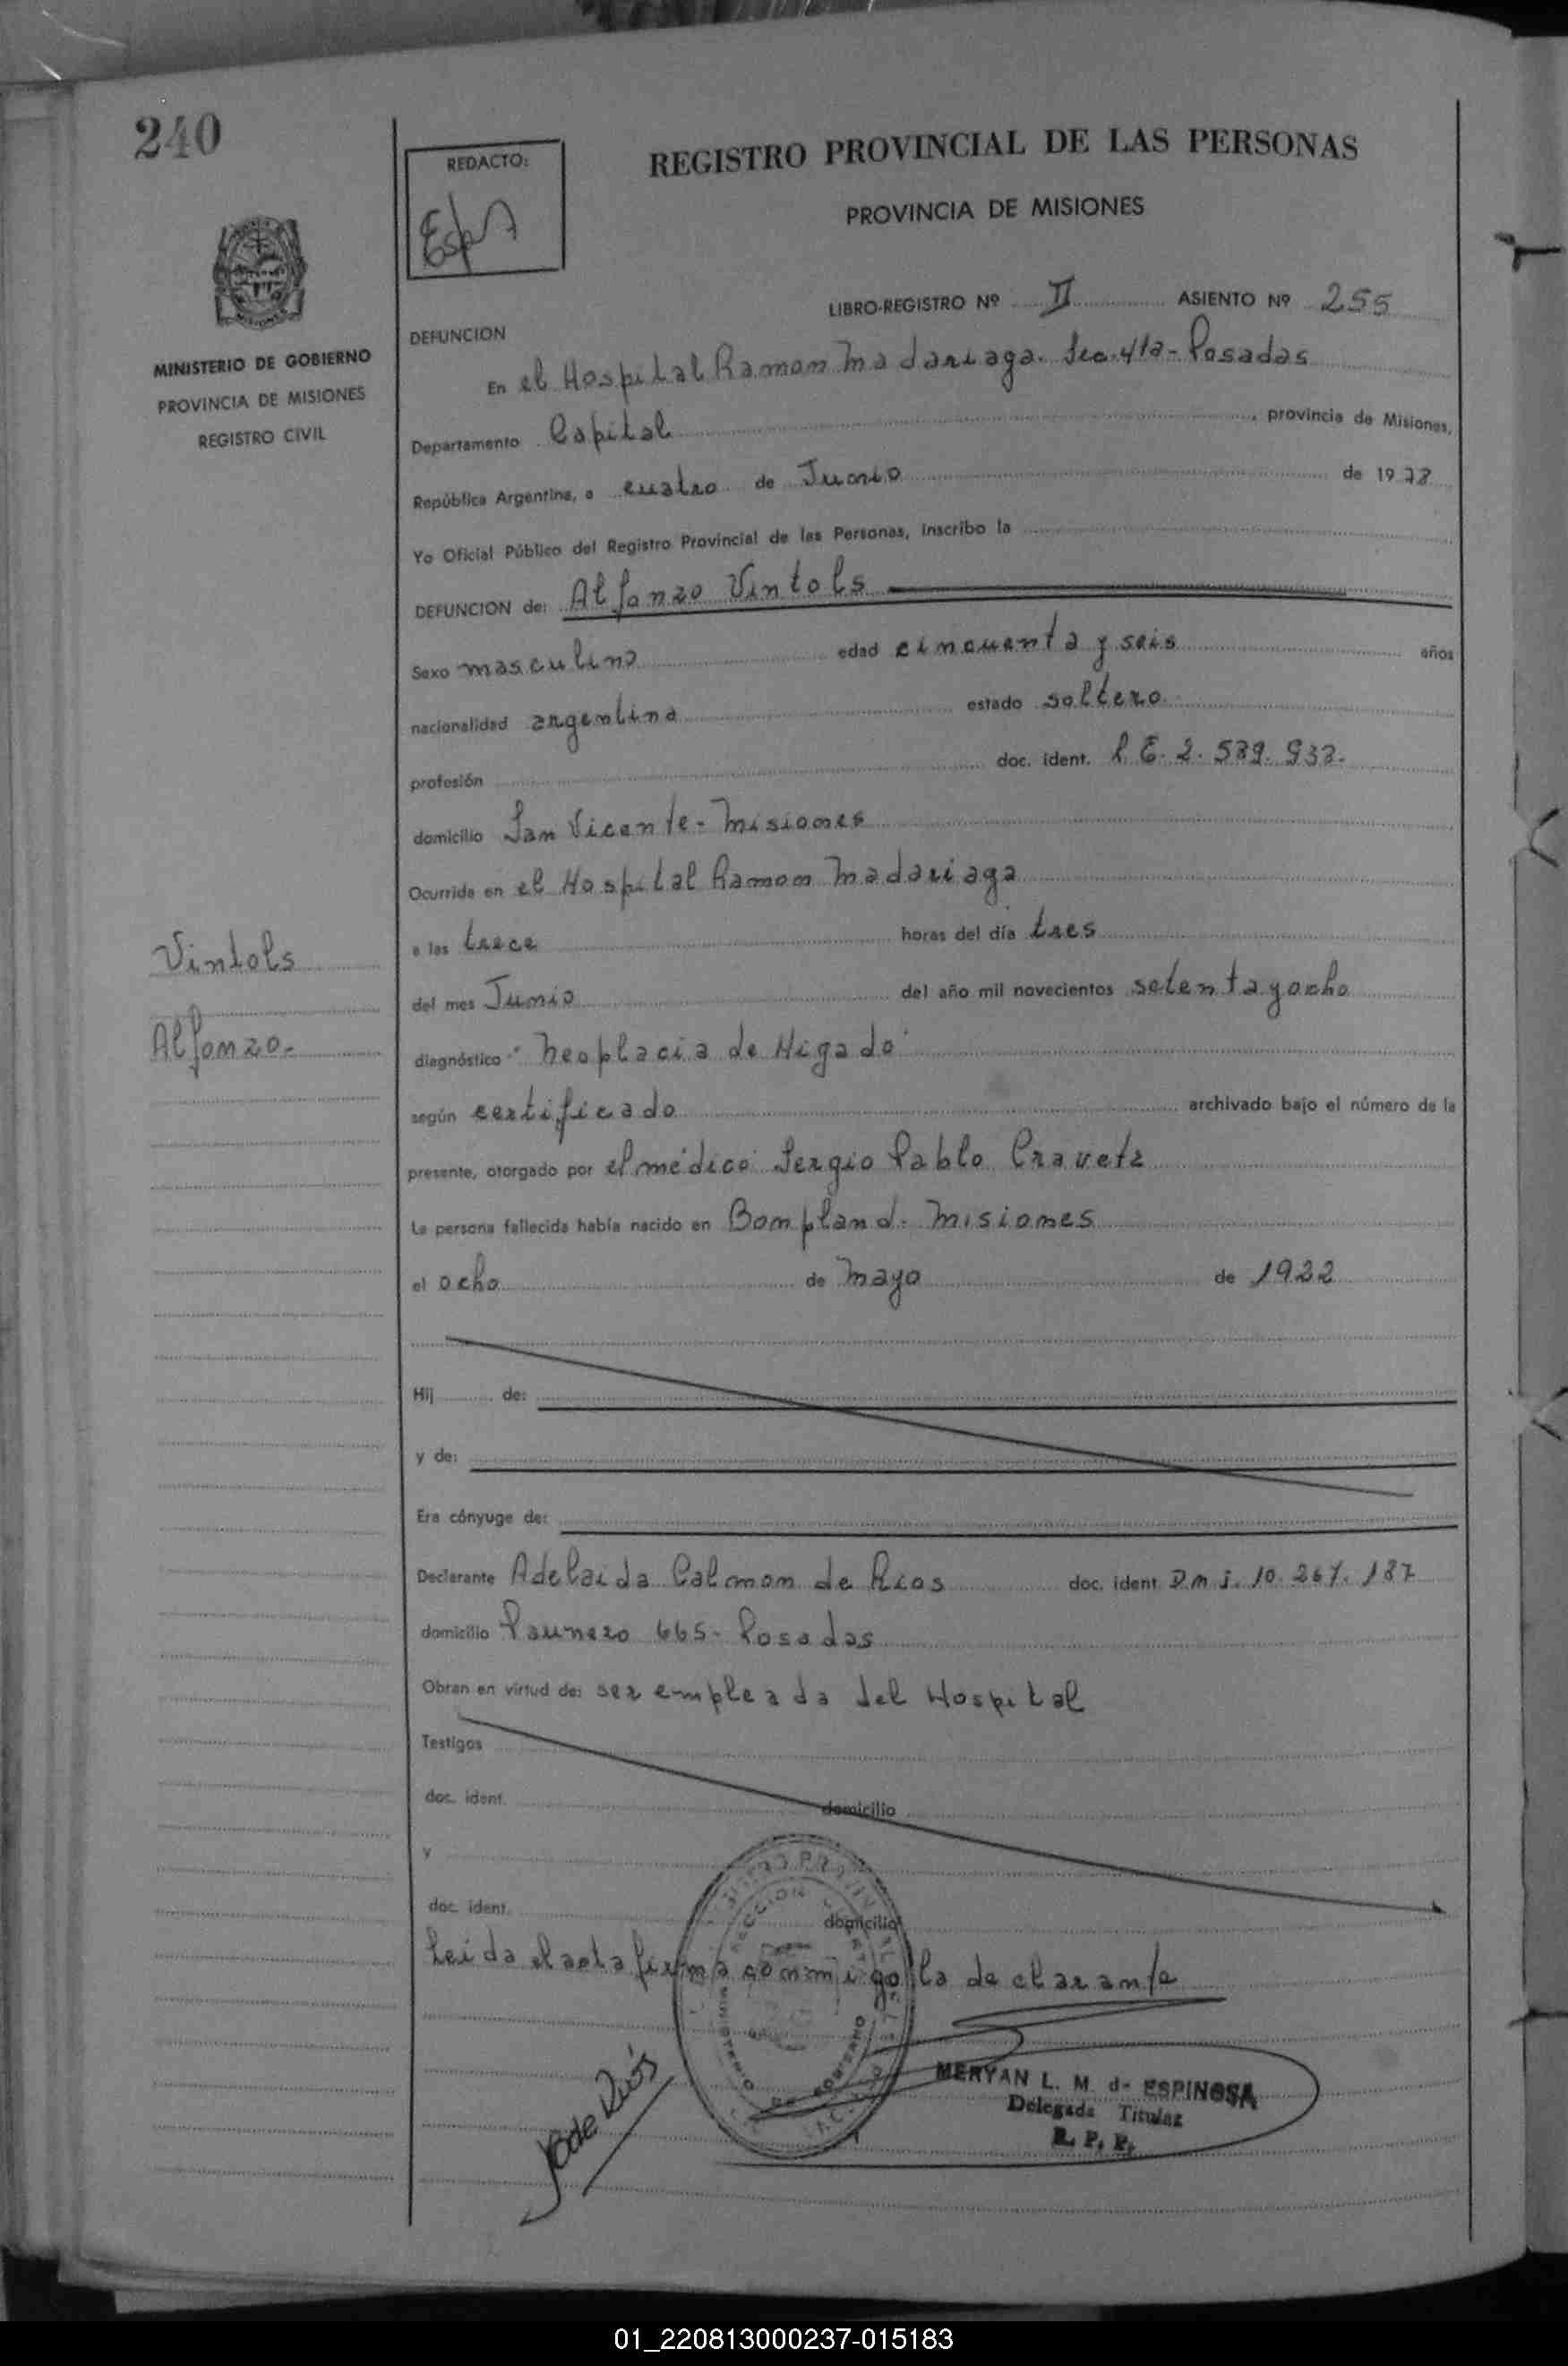 240
REDACTO:
REGISTRO PROVINCIAL DE LAS PERSONAS
PROVINCIA DE MISIONES
LIBRO-REGISTRO Nº II ASIENTO Nº 255
MINISTERIO DE GOBIERNO
PROVINCIA DE MISIONES
REGISTRO CIVIL
DEFUNCION
En el Hospital Ramon Madariaga. Sec. 4ta - Posadas
Departamento Capital, provincia de Misiones,
República Argentina, a cuatro de Junio de 1978
Yo Oficial Público del Registro Provincial de las Personas, inscribo la
DEFUNCION de: Alfonzo Vintols
Sexo masculino edad cincuenta y seis años
nacionalidad argentina estado soltero
profesión doc. ident. L.E. 2.589.933.
domicilio San Vicente - Misiones
Ocurrida en el Hospital Ramon Madariaga
a las trece horas del día tres
del mes Junio del año mil novecientos setenta y ocho
diagnóstico "Neoplacia de Higado"
según certificado archivado bajo el número de la
presente, otorgado por el médico Sergio Pablo Cravetz
La persona fallecida había nacido en Bompland. Misiones
el ocho de mayo de 1922
Vintols
Alfonzo.
Hij de:
y de:
Era cónyuge de:
Declarante Adelaida Calmon de Rios doc. ident D.M.i. 10.267.187
domicilio Paunero 665 - Posadas
Obran en virtud de: ser empleada del Hospital
Testigos
doc. ident. domicilio
y
doc. ident. domicilio
Leida el acta firma conmigo la declarante
A de Ríos
MERYAN L. M. de ESPINOSA
Delegada Titular
R. P. P.
01_220813000237-015183